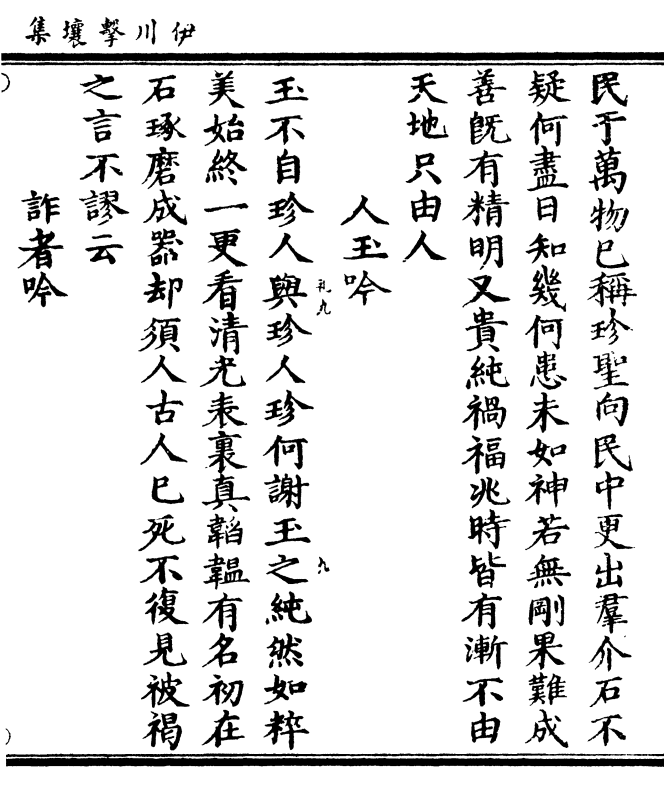 伊川擊壤集
民于萬物已稱珍聖向民中更出羣介石不
疑何盡日知幾何患未如神若無剛果難成
善旣有精明又貴純禍福兆時皆有漸不由
天地只由人
人玉吟
玉不自珍人與珍人珍何謝玉之純然如粹
礼九
九
美始終一更看清光表裏真韜韞有名初在
石琢磨成器却須人古人已死不復見被褐
之言不謬云
詐者吟